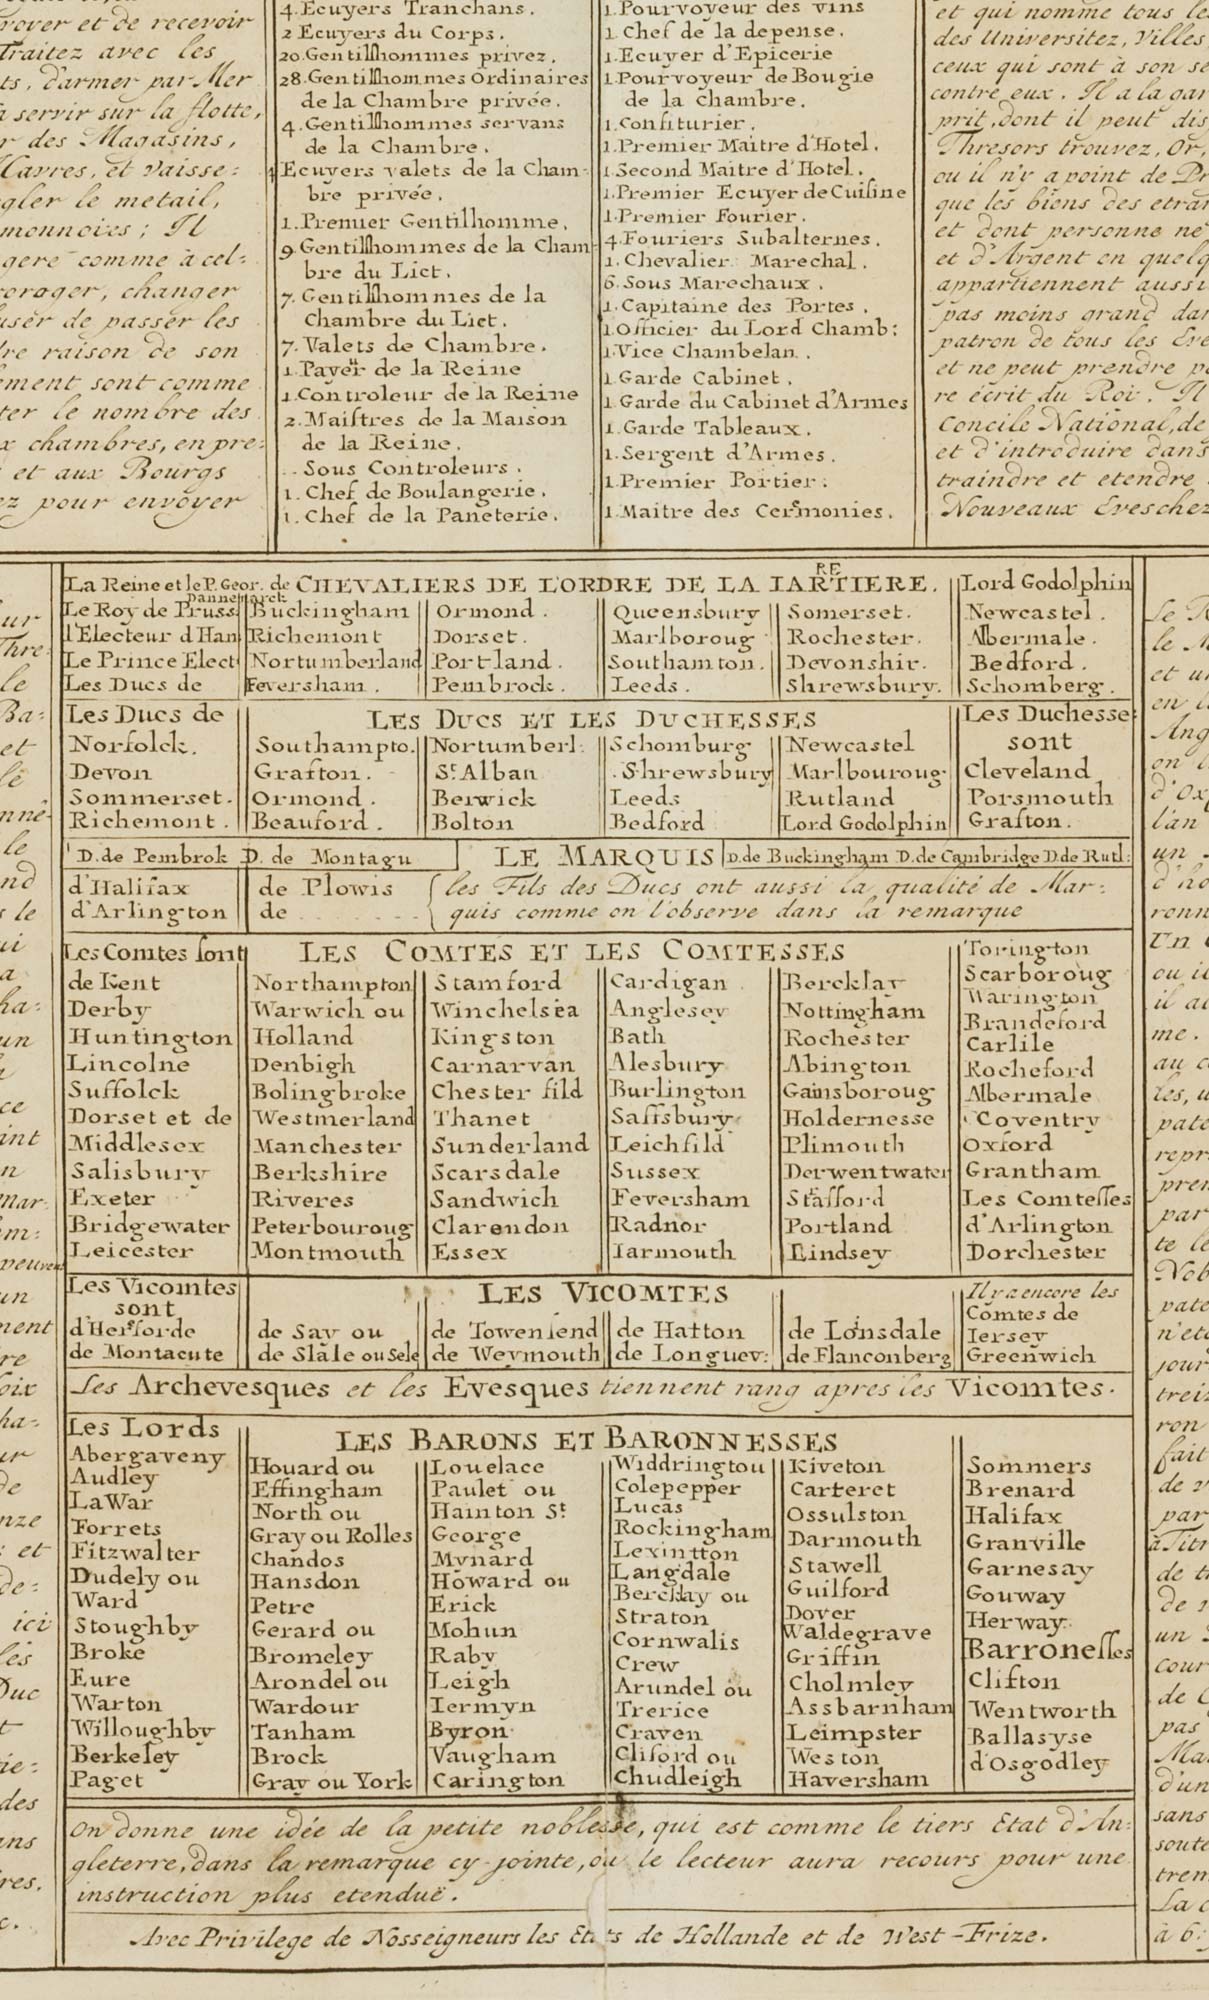 rover et de recevoir
Traitez avec les
ts, d'armer par Mer
a servir sur la flotte,
r des Magasins,
Havres, et vaisse=
gler le metail,
monnoies; Il
gere comme à cel=
proroger, changer
user de passer les
dre raison de son
lement sont comme
ter le nombre des
x chambres, en pre=
et aux Bourgs
ez pour envoyer
4. Ecuyers Tranchans.
2 Ecuyers du Corps.
20. Gentilshommes privez.
28. Gentilshommes Ordinaires
de la Chambre privée.
4. Gentilshommes servans
de la Chambre.
4 Ecuyers valets de la Cham=
bre privée.
1. Premier Gentilhomme.
9. Gentilshommes de la Cham
bre du Lict.
7. Gentilshommes de la
Chambre du Lict.
7. Valets de Chambre.
1. Payer de la Reine
1. Controleur de la Reine
2. Maistres de la Maison
de la Reine.
.. Sous Controleurs.
1. Chef de Boulangerie.
1. Chef de la Paneterie.
1. Pourvoyeur des vins
1. Chef de la depense.
1. Ecuyer d'Epicerie
1. Pourvoyeur de Bougie
de la chambre.
1. Confiturier.
1. Premier Maitre d'Hotel.
1. Second Maitre d'Hotel.
1. Premier Ecuyer de Cuisine
1. Premier Fourier.
4. Fouriers Subalternes.
1. Chevalier Marechal.
6. Sous Marechaux.
1. Capitaine des Portes.
1. Officier du Lord Chamb:
1. Vice Chambelan.
1. Garde Cabinet.
1. Garde du Cabinet d'Armes
1. Garde Tableaux.
1. Sergent d'Armes.
1. Premier Portier.
1. Maitre des Ceremonies.
et qui nomme tous le
des Universitez, Villes
ceux qui sont à son se
contre eux. Il a la gar
prit, dont il peut dis
Thresors trouvez, Or,
ou il n'y a point de Pr
que les biens des etran
et dont personne ne
et d'Argent en quelq
appartiennent aussi
pas moins grand dan
patron de tous les Eve
et ne peut prendre po
re écrit du Roi. Il
Concile National, de
et d'introduire dans
traindre et etendre
Nouveaux Eveschez
La Reine et le P. Geor. de Dannemarck
CHEVALIERS DE L'ORDRE DE LA IARTIERE.
RE
Lord Godolphin
Le Roy de Pruss:
Buckingham
Ormond.
Queensbury
Somerset.
Newcastel.
l'Electeur d'Han
Richemont
Dorset.
Marlboroug
Rochester.
Albermale.
Le Prince Elect
Nortumberland
Portland.
Southamton.
Devonshir.
Bedford.
Les Ducs de
Feversham.
Pembrock.
Leeds.
Shrewsbury.
Schomberg.
LES DUCS ET LES DUCHESSES
Les Ducs de
Norfolck.
Devon
Sommerset.
Richemont.
Southampto.
Grafton.
Ormond.
Beauford.
Nortumberl:
St. Alban
Berwick
Bolton
Schomburg
Shrewsbury
Leeds
Bedford
Newcastel
Marlbouroug
Rutland
Lord Godolphin
Les Duchesse:
sont
Cleveland
Porsmouth
Grafton.
D. de Pembrok D. de Montagu
LE MARQUIS
D. de Buckingham D. de Cambridge D. de Rutl:
d'Halifax
d'Arlington
de Plowis
de ........
les Fils des Ducs ont aussi la qualité de Mar=
quis comme on l'observe dans la remarque
LES COMTES ET LES COMTESSES
Les Comtes sont
de Kent
Derby
Huntington
Lincolne
Suffolck
Dorset et de
Middlesex
Salisbury
Exeter
Bridgewater
Leicester
Northampton
Warwich ou
Holland
Denbigh
Bolingbroke
Westmerland
Manchester
Berkshire
Riveres
Peterbouroug
Montmouth
Stamford
Winchelsea
Kingston
Carnarvan
Chester fild
Thanet
Sunderland
Scarsdale
Sandwich
Clarendon
Essex
Cardigan
Anglesey
Bath
Alesbury
Burlington
Saffsbury
Leichfild
Sussex
Feversham
Radnor
Iarmouth
Bercklay
Nottingham
Rochester
Abington
Gainsboroug
Holdernesse
Plimouth
Derwentwater
Stafford
Portland
Lindsey
Torington
Scarboroug
Warington
Brandeford
Carlile
Rocheford
Albermale
Coventry
Oxford
Grantham
Les Comtesses
d'Arlington
Dorchester
LES VICOMTES
Les Vicomtes
sont
d'Herforde
de Montacute
de Say ou
de Slale ou Sele
de Towensend
de Weymouth
de Hatton
de Longuev:
de Lonsdale
de Flanconberg
Il y a encore les
Comtes de
Iersey
Greenwich
Les Archevesques et les Evesques tiennent rang apres les Vicomtes.
LES BARONS ET BARONNESSES
Les Lords
Abergaveny
Audley
La War
Forrets
Fitzwalter
Dudely ou
Ward
Stoughby
Broke
Eure
Warton
Willoughby
Berkeley
Paget
Houard ou
Effingham
North ou
Gray ou Rolles
Chandos
Hansdon
Petre
Gerard ou
Bromeley
Arondel ou
Wardour
Tanham
Brock
Gray ou York
Louelace
Paulet ou
Hainton St.
George
Mynard
Howard ou
Erick
Mohun
Raby
Leigh
Iermyn
Byron
Vaugham
Carington
Widdrington
Colepepper
Lucas
Rockingham
Lexintton
Langdale
Bercklay ou
Straton
Cornwalis
Crew
Arundel ou
Trerice
Craven
Cliford ou
Chudleigh
Kiveton
Carteret
Ossulston
Darmouth
Stawell
Guilford
Dover
Waldegrave
Griffin
Cholmley
Assbarnham
Leimpster
Weston
Haversham
Sommers
Brenard
Halifax
Granville
Garnesay
Gouway
Herway.
Barronesses
Clifton
Wentworth
Ballasyse
d'Osgodley
On donne une idée de la petite noblesse, qui est comme le tiers Etat d'An=
gleterre, dans la remarque cy-jointe, ou le lecteur aura recours pour une
instruction plus etenduë.
Avec Privilege de Nosseigneurs les Etats de Hollande et de West-Frize.